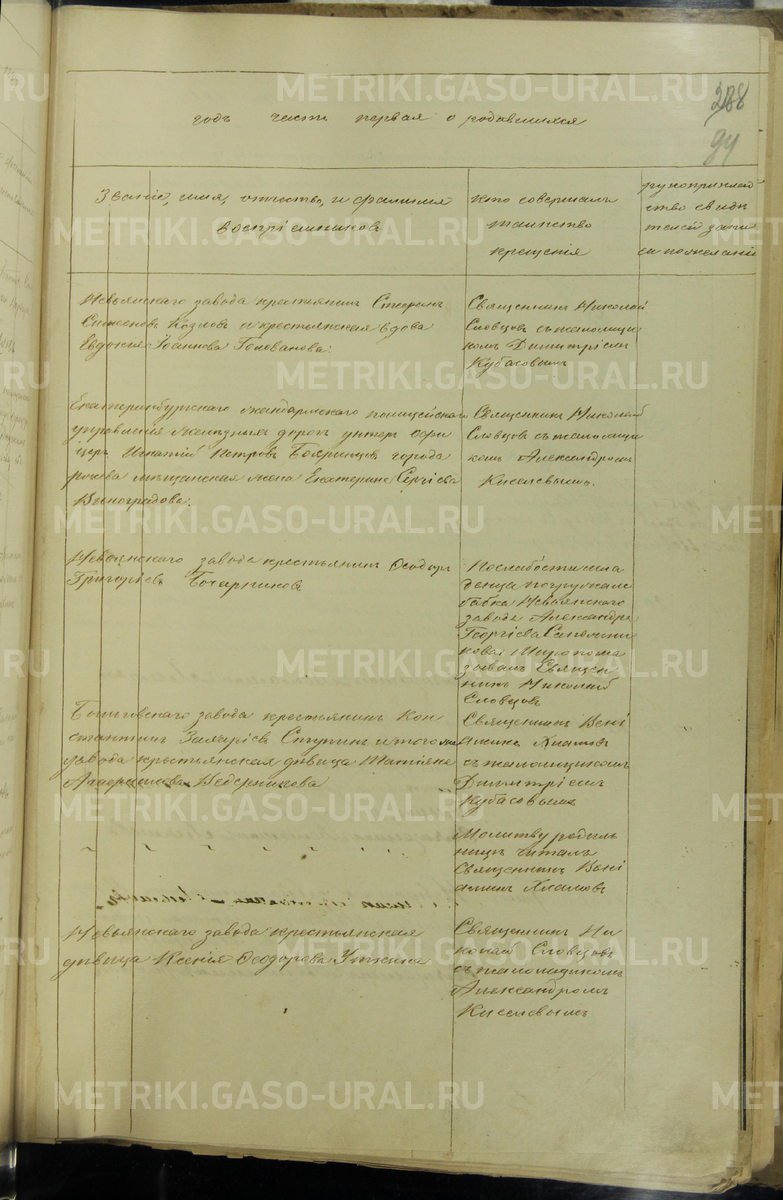 288
94
годъ часть первая о родившихся
Званіе, имя, отчество, и фамилія
воспріемниковъ
кто совершалъ
таинство
крещенія
рукоприклад
ство свидѣ
телей запи
си по желанію
Невьянскаго завода крестьянинъ Стефанъ
Симеоновъ Козловъ и крестьянская вдова
Евдокія Іоаннова Голованова.
Священникъ Николай
Словцовъ съ псаломщи
комъ Димитріемъ
Кубасовымъ
Екатеринбургскаго жандармскаго полицейскаго
управленія желѣзныхъ дорогъ унтеръ офи
церъ Игнатій Петровъ города
мѣщанская жена Екатерина Сергіева
Виноградова.
Священникъ Николай
Словцовъ съ псаломщи
комъ Александромъ
Киселевымъ.
Невьянскаго завода крестьянинъ Ѳеодоръ
Григоріевъ Бочарниковъ
По слабости мла
денца погружала
бабка Невьянскаго
завода Александра
Георгіева
кова; Миропома
зывалъ Священ
никъ Николай
Словцовъ
завода крестьянинъ Кон
стантинъ Захаріевъ Ступинъ и того же
завода крестьянская дѣвица Татіана
Священникъ Вені
аминъ Хламовъ
съ псаломщикомъ
Димитріемъ
Кубасовымъ
Молитву родиль
ницѣ читалъ
Священникъ Вені
аминъ Хламовъ
Невьянскаго завода крестьянская
дѣвица Ксенія Ѳеодорова Уткина
Священникъ Ни
колай Словцовъ
съ псаломщикомъ
Александромъ
Киселевымъ
METRIKI.GASO-URAL.RU